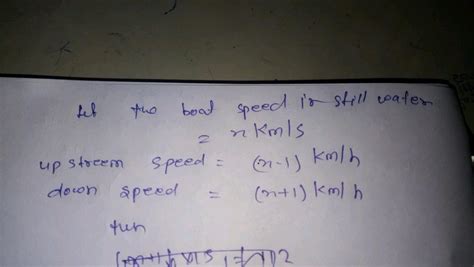 Let the boat speed in still water
= x Km/s
up streem speed = (x-1) Km/h
down speed = (x+1) Km/h